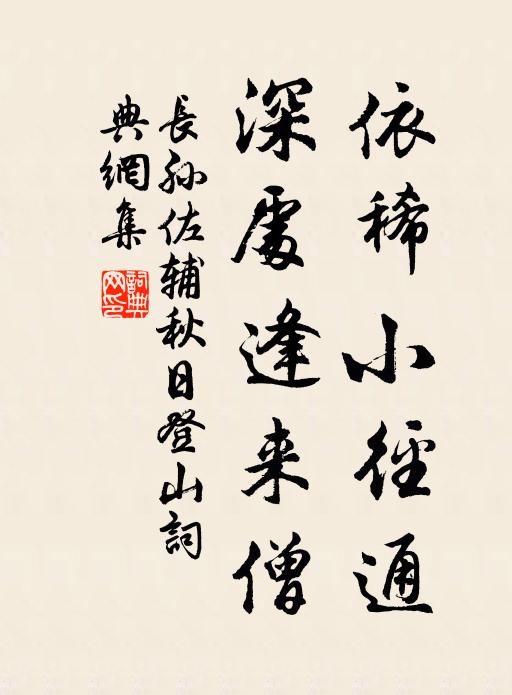 依稀小徑通
深處逢来僧
長孫佐輔秋日登山詞
典網集
詞典網印